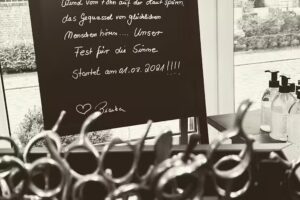 Wind vom Fön auf der Haut spüren,
das Gequassel von glücklichen
Menschen hören.... Unser
Fest für die Sinne
Startet am 01.03.2021!!!!